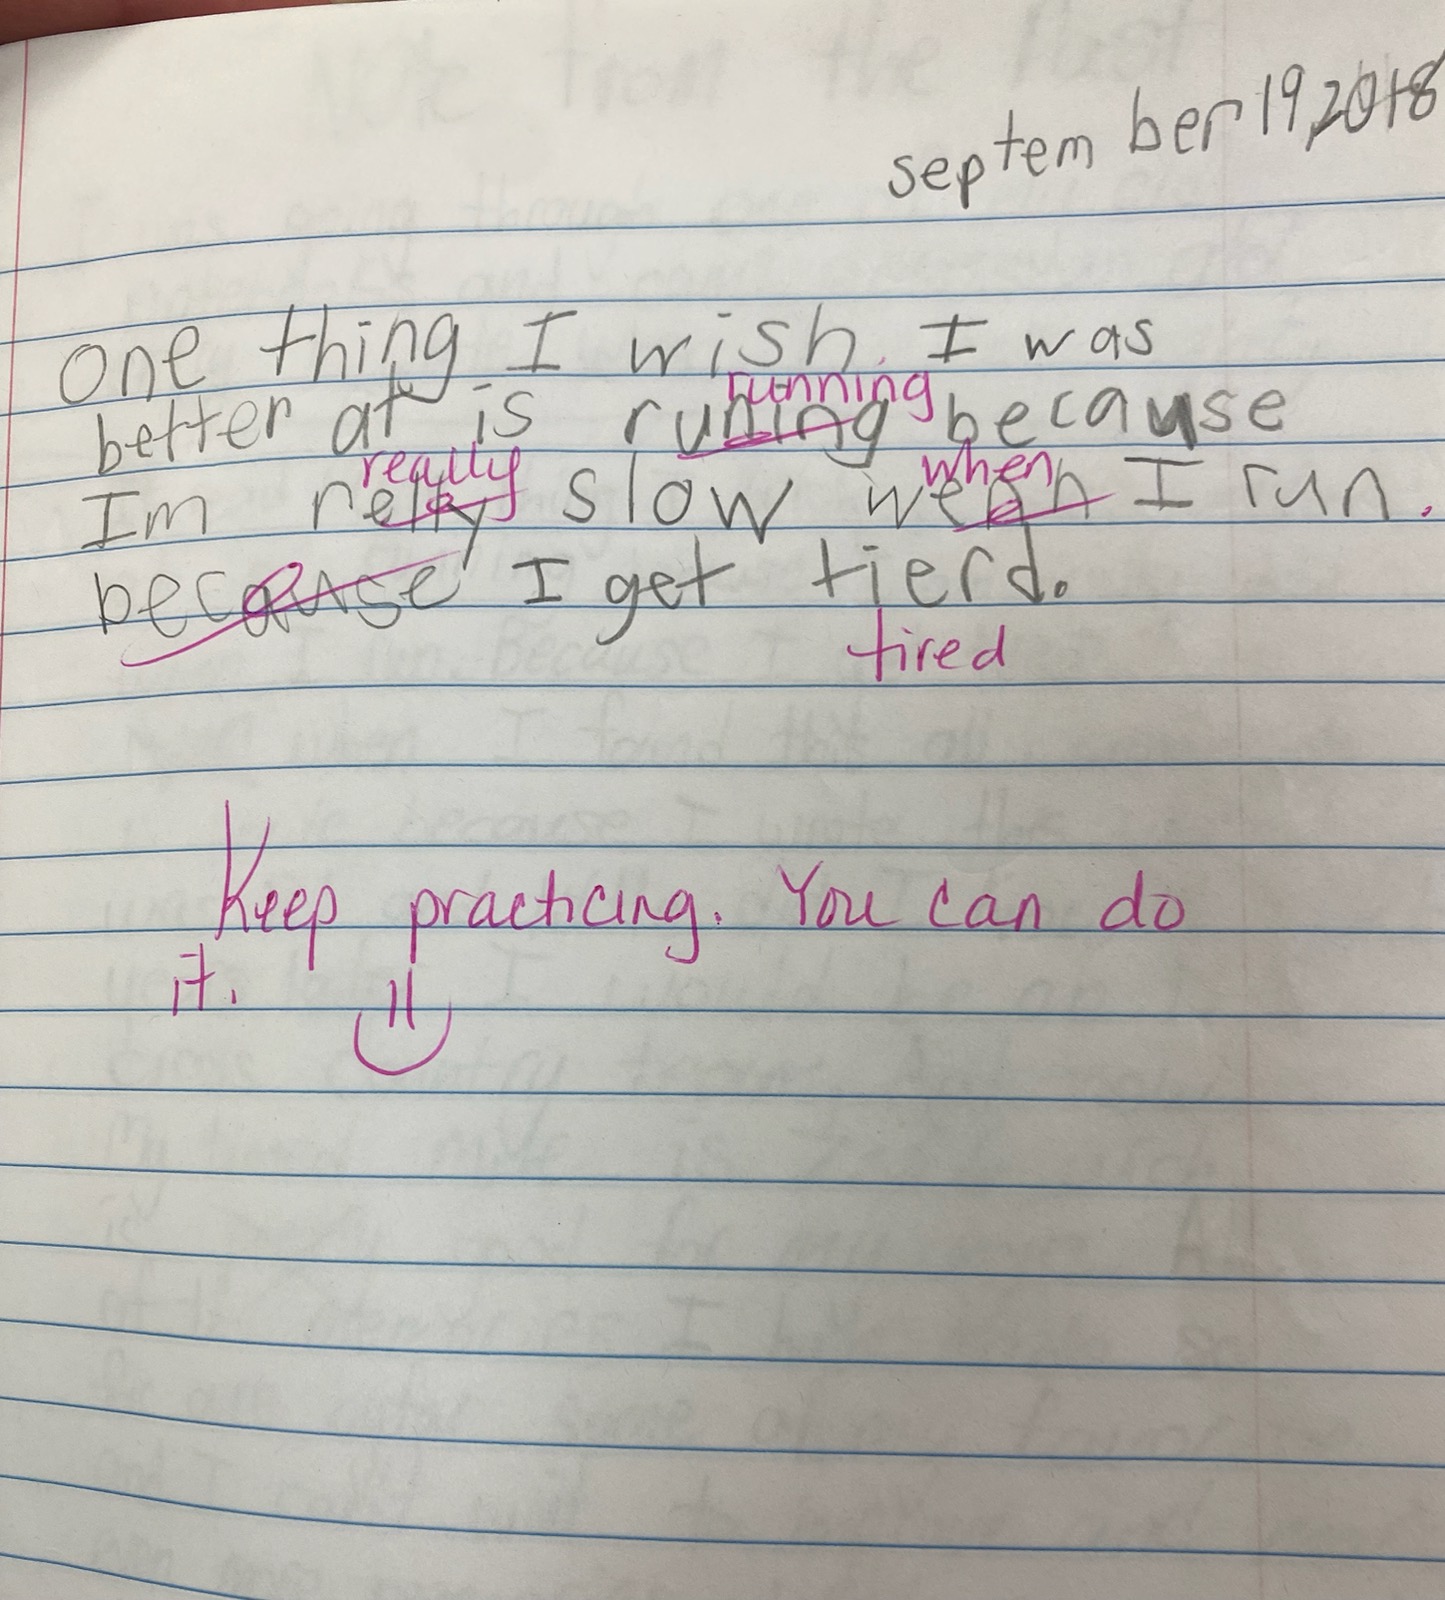 september 19, 2018
One thing I wish I was
running
better at is runing because
really when
Im relly slow wenn I run.
because I get tierd.
tired
Keep practicing. You can do
it.